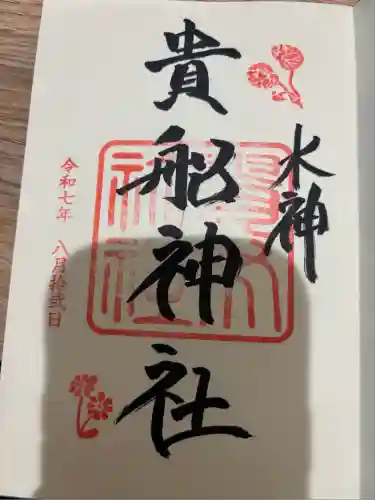 水神
貴船神社
令和七年 八月拾弐日